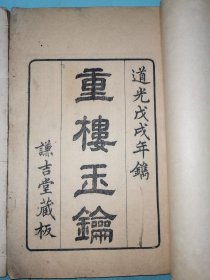 道光戊戌年鐫
重樓玉鑰
謙吉堂藏板